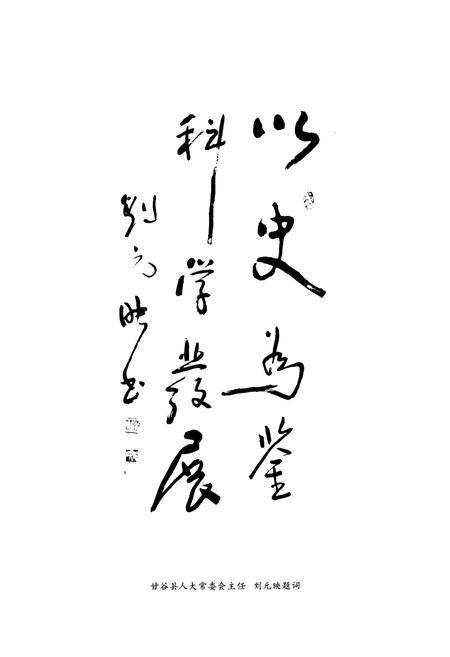 以史为鉴
科学发展
刘元映书
甘谷县人大常委会主任 刘元映题词